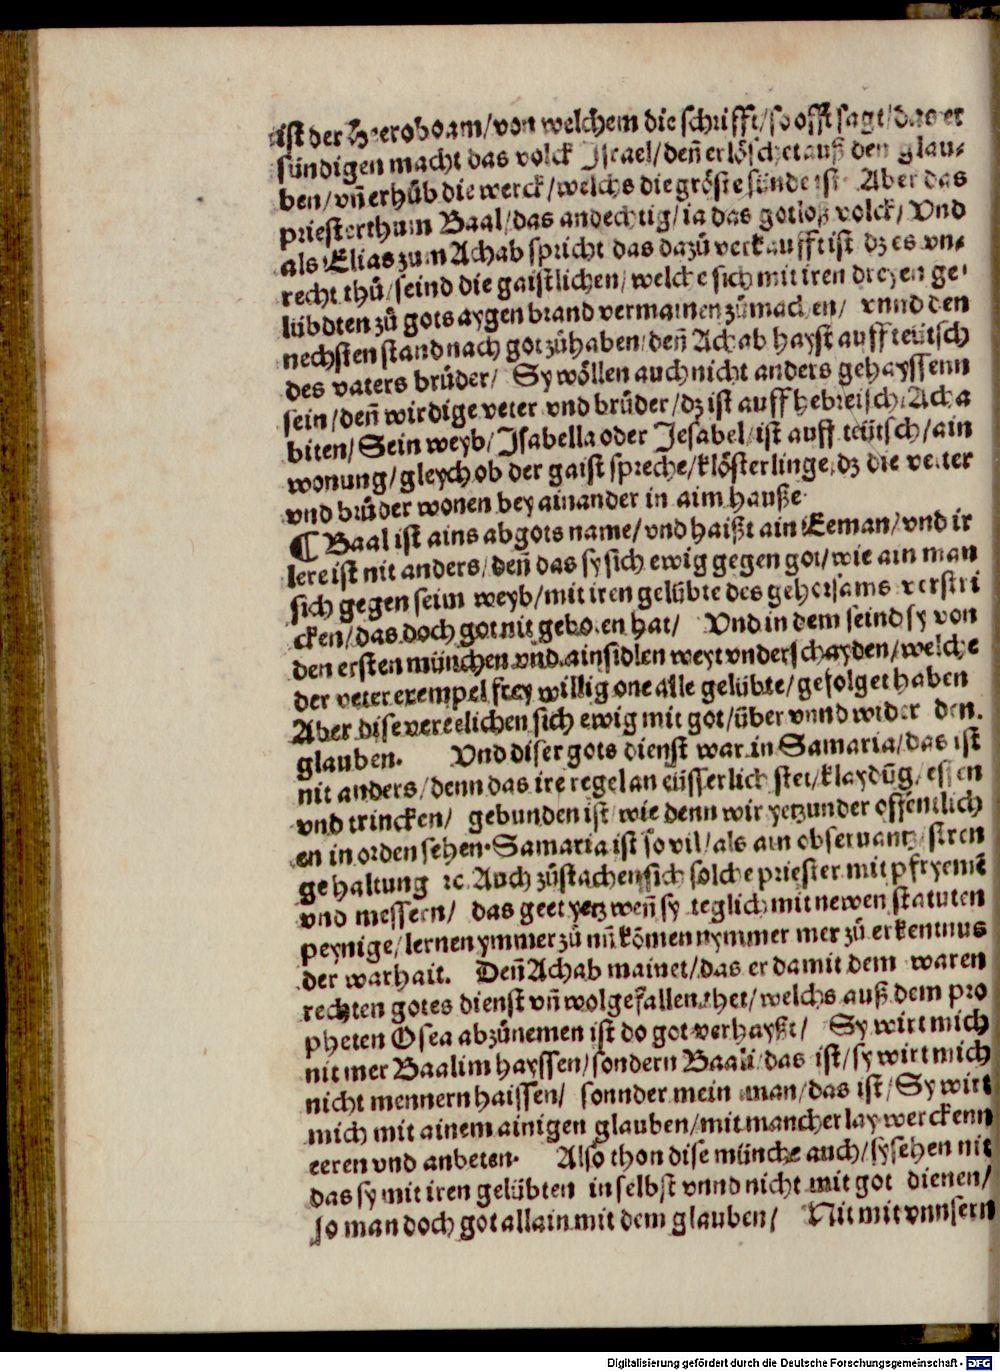 ist der Hieroboam/von welchem die schrifft/so offt sagt/das er
sündigen macht das volck Israel/deñ er löschet auß den glau-
ben/vñ erhůb die werck/welchs die gröste sünde ist Aber das
priesterthum Baal/das andechtig/ia das gotloß volck/Vnd
als Elias zum Achab spricht das dazů verkaufft ist dz es vn-
recht thů/seind die gaistlichen/welche sich mit iren dreyen ge-
lübdten zů gots aygen brand vermainen zůmachen/ vnnd den
nechsten stand nach got zůhaben/deñ Achab hayst auff teütsch
des vaters brůder/ Sy wöllen auch nicht anders gehayssenn
sein/deñ wirdige veter vnd brůder/dz ist auff hebreisch/Acha
biten/Sein weyb/Isabella oder Jesabel/ist auff teütsch/ain
wonung/gleych ob der gaist spreche/klösterlinge/dz die vetter
vnd brůder wonen bey ainander in aim hauße.
¶ Baal ist ains abgots name/vnd haißt ain Eeman/vnd ir
lere ist nit anders/deñ das sy sich ewig gegen got/wie ain man
sich gegen seim weyb/mit iren gelübte des gehorsams verstri
cken/das doch got nit geboten hat/ Vnd in dem seind sy von
den ersten münchen vnd ainsidlen weyt vnderschayden/welche
der veter exempel frey willig one alle gelübte/gefolget haben
Aber dise vereelichen sich ewig mit got/über vnnd wider den
glauben. Vnd diser gots dienst war in Samaria/das ist
nit anders/denn das ire regel an eüsserlich stet/klaydũg/essen
vnd trincken/ gebunden ist/wie denn wir yetzunder offentlich
en in orden sehen. Samaria ist so vil/als ain obseruantz/iren
gehaltung ꝛc. Auch zůstachen sich solche priester mit pfryemẽ
vnd messern/ das geet yetz weñ sy teglich mit newen statuten
peynige/lernen ymmer zů vñ kõmen nymmer mer zů erkentnus
der warhait. Deñ Achab mainet/das er damit dem waren
rechten gotes dienst vñ wolgefallen thet/welchs auß dem pro
pheten Osea abzůnemen ist do got verhayßt/ Sy wirt mich
nit mer Baalim hayssen/sondern Baali/das ist/sy wirt mich
nicht mennern haissen/ sonnder mein man/das ist/Sy wirt
mich mit ainem ainigen glauben/mit mancherlay werckenn
eeren vnd anbeten. Also thon dise münche auch/sy sehen nit
das sy mit iren gelübten in selbst vnnd nicht mit got dienen/
so man doch got allain mit dem glauben/ Nit mit vnnsern
Digitalisierung gefördert durch die Deutsche Forschungsgemeinschaft - DFG